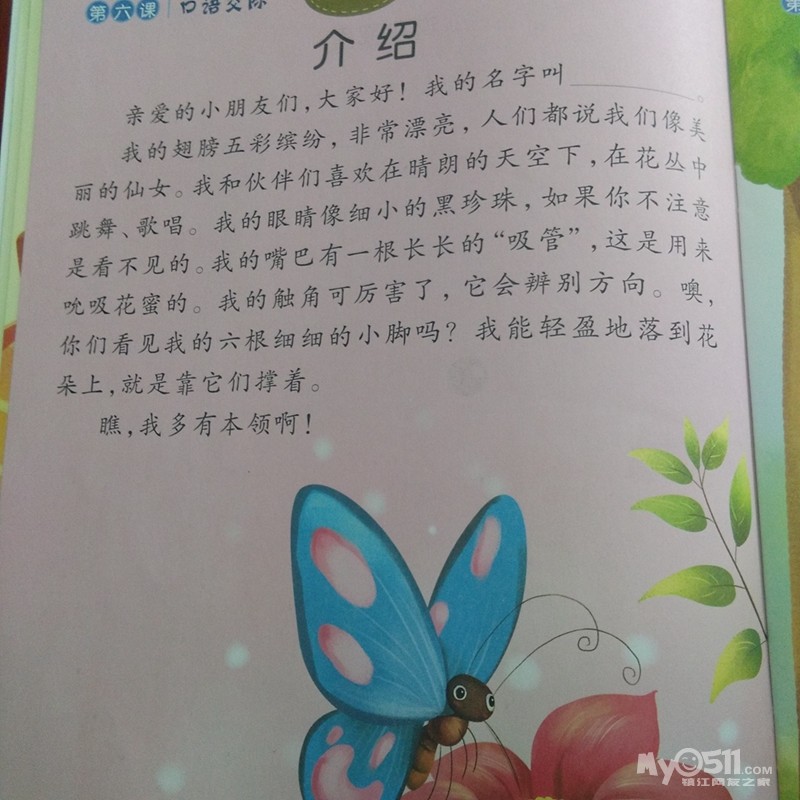 第六课 口语交际
介绍
亲爱的小朋友们，大家好！我的名字叫________。
我的翅膀五彩缤纷，非常漂亮，人们都说我们像美
丽的仙女。我和伙伴们喜欢在晴朗的天空下，在花丛中
跳舞、歌唱。我的眼睛像细小的黑珍珠，如果你不注意
是看不见的。我的嘴巴有一根长长的“吸管”，这是用来
吮吸花蜜的。我的触角可厉害了，它会辨别方向。噢，
你们看见我的六根细细的小脚吗？我能轻盈地落到花
朵上，就是靠它们撑着。
瞧，我多有本领啊！
第
My0511.com
镇江网友之家